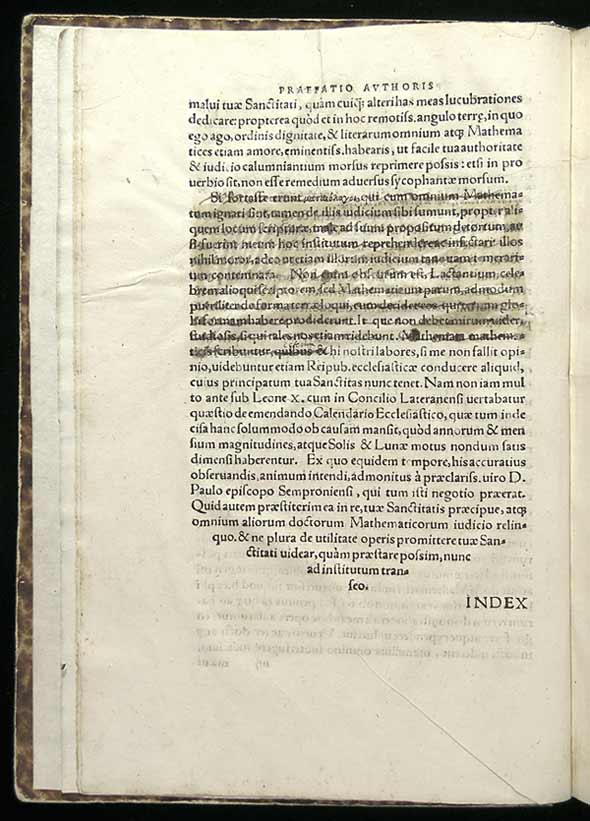 PRAEFATIO AVTHORIS
malui tuæ Sanctitati, quàm cuiq̃ alteri has meas lucubrationes
dedicare: propterea quòd et in hoc remotiss. angulo terrę, in quo
ego ago, ordinis dignitate, & literarum omnium atq̃ Mathema
tices etiam amore, eminentiss. habearis, ut facile tua authoritate
& iudicio calumniantium morsus reprimere possis: etsi in pro
uerbio sit, non esse remedium aduersus sycophantæ morsum.
Si fortasse erunt qui cum omnium Mathema-
tum ignari sint, tamen de illis iudicium sibi sumunt, propter ali-
quem locum scripturæ, male ad suum propositum detortum, au
si fuerint meum hoc institutum reprehendere ac insectari: illos
nihil moror, adeo ut etiam illorum iudicium tanquam temerari-
um contemnam. Non enim obscurum est, Lactantium, cele
brem alioqui scriptorem, sed Mathematicum parum, admodum
pueriliter de forma terræ loqui, cum deridet eos, qui terram glo-
bi formam habere prodiderunt. Itaque non debet mirum uideri
studiosis, si qui tales nos etiam ridebunt. Mathemata mathema-
ticis scribuntur, quibus & hi nostri labores, si me non fallit opi-
nio, uidebuntur etiam Reipub. ecclesiasticæ conducere aliquid,
cuius principatum tua Sanctitas nunc tenet. Nam non iam mul
to ante sub Leone X. cum in Concilio Lateranensi uertabatur
quæstio de emendando Calendario Ecclesiastico, quæ tum inde
cisa hanc solummodo ob causam mansit, quòd annorum & men
sium magnitudines, atque Solis & Lunæ motus nondum satis
dimensi haberentur. Ex quo equidem tempore, his accuratius
obseruandis, animum intendi, admonitus à præclariss. uiro D.
Paulo episcopo Semproniensi, qui tum isti negotio præerat.
Quid autem præstiterim ea in re, tuæ Sanctitatis præcipue, atq̃
omnium aliorum doctorum Mathematicorum iudicio relin-
quo. & ne plura de utilitate operis promittere tuæ San-
ctitati uidear, quàm præstare possim, nunc
ad institutum tran-
seo.
INDEX